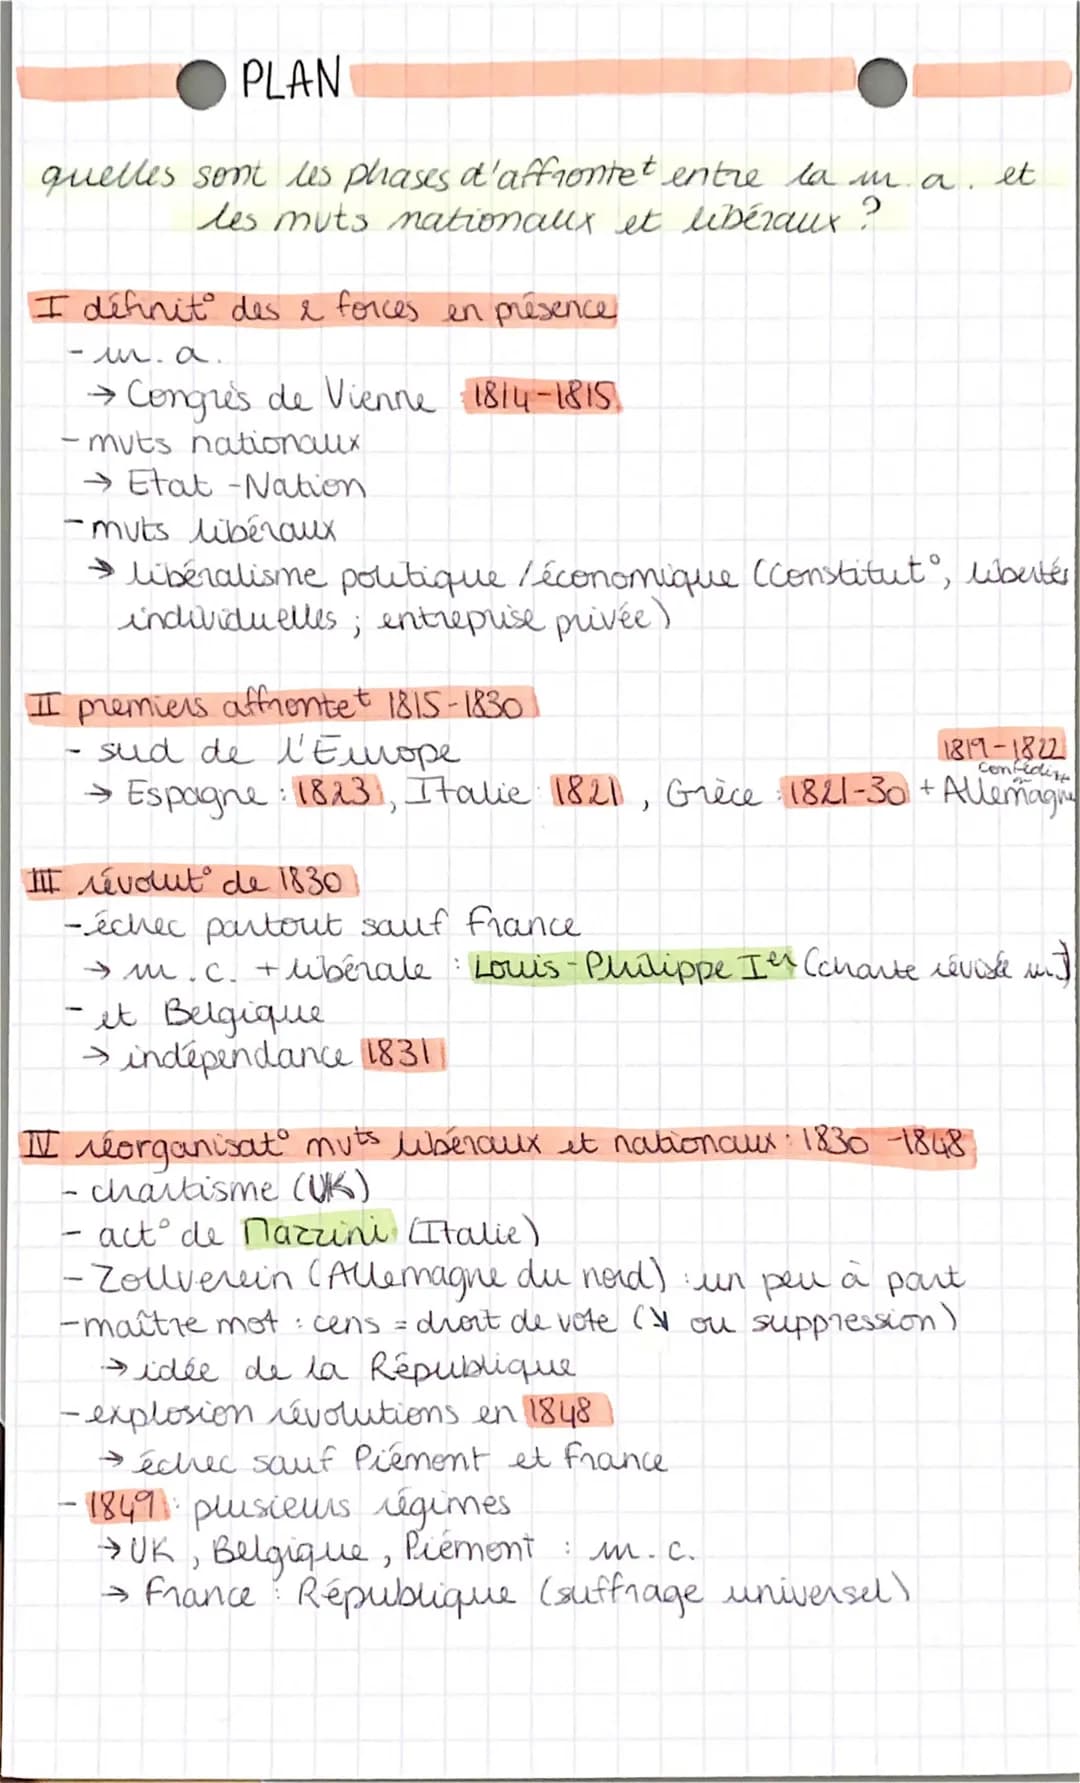 PLAN
quelles sont les phases d'affrontet entre la m.a. et
les mvts nationaux et libéraux ?
I définit° des 2 forces en présence
- m.a.
→ Congrès de Vienne 1814-1815
- mvts nationaux
→ Etat-Nation
- mvts libéraux
→ libéralisme politique / économique (constitut°, libertés
individuelles ; entreprise privée)
II premiers affrontet 1815-1830
- sud de l'Europe
1819-1822
→ Espagne : 1823, Italie 1821, Grèce : 1821-30 + Allemagne
III révolut° de 1830
- échec partout sauf France
→ m.c. + libérale : Louis-Philippe Ier (charte révisée
- et Belgique
→ indépendance 1831
IV réorganisat° mvts libéraux et nationaux : 1830-1848
- chartisme (UK)
- act° de Mazzini (Italie)
- Zollverein (Allemagne du nord) : un peu à part
- maître mot : cens = droit de vote (↘ ou suppression)
→ idée de la République
- explosion révolutions en 1848
→ échec sauf Piémont et France
- 1849 : plusieurs régimes
→ UK, Belgique, Piémont : m.c.
→ France : République (suffrage universel)